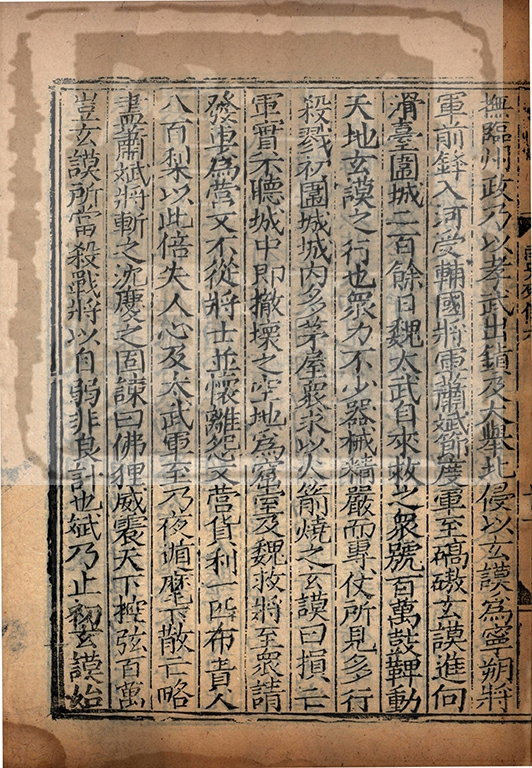 撫臨州政乃以孝武出鎮及大舉北侵以玄謨為寧朔將
軍前鋒入河受輔國將軍蕭斌節度軍至碻磝玄謨進向
滑臺圍城二百餘日魏太武自來救之衆號百萬鼓鞞動
天地玄謨之行也衆力不少器械精嚴而專仗所見多行
殺戮初圍城城内多茅屋衆求以火箭燒之玄謨曰損亡
軍實不聽城中即撤壞之空地為窟室及魏救將至衆請
發車為營又不從將士並懷離怨又營貨利一匹布責人
八百梨以此倍失人心及太武軍至乃夜遁麾下散亡略
盡蕭斌將斬之沈慶之固諫曰佛狸威震天下控弦百萬
豈玄謨所當殺戰將以自弱非良計也斌乃止初玄謨始